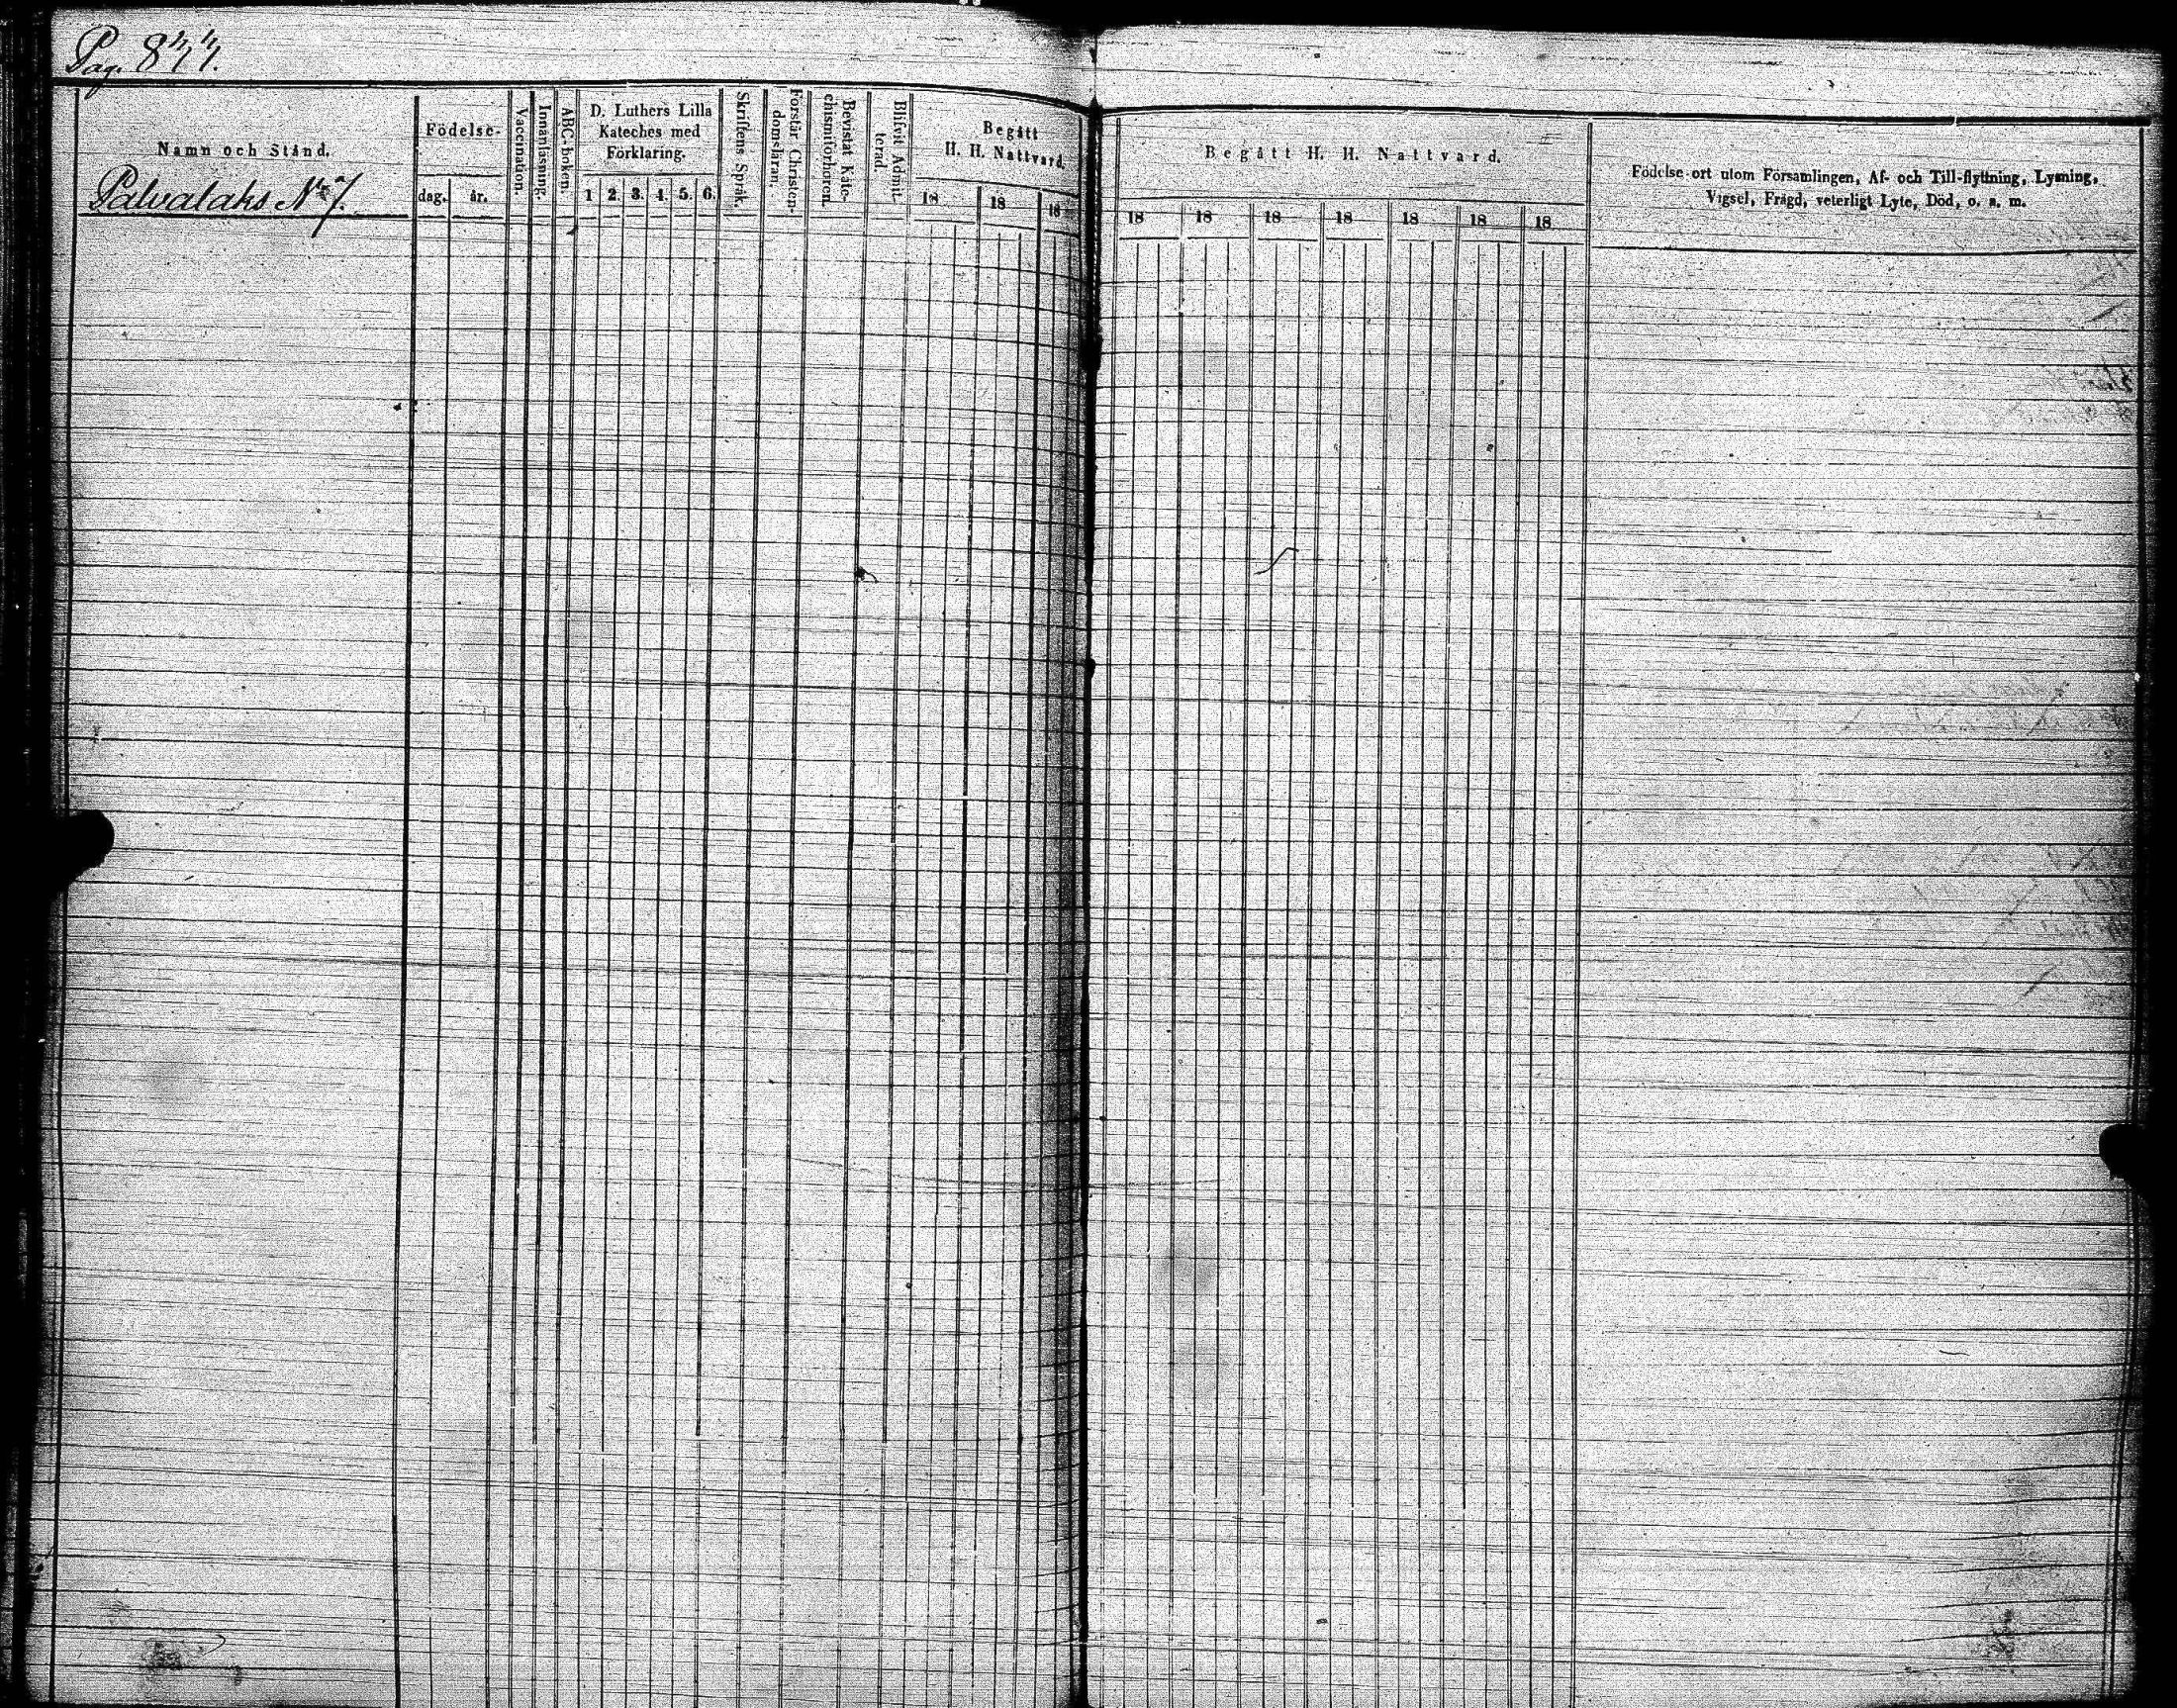 Pag. 877.
Namn och Stånd.
Palvalaks No 7.
Födelse-
dag. år.
Vaccination.
Innanläsning.
ABC-boken.
D. Luthers Lilla
Kateches med
Förklaring.
1 2. 3. 4. 5. 6.
Skriftens Språk.
Förstår Christen-
domsläran.
Bevistat Kate-
chismiförhören.
Blifvit Admit-
terad.
Begått
H. H. Nattvard.
18 18 18
Begått H. H. Nattvard.
18 18 18 18 18 18 18
Födelse-ort utom Församlingen, Af- och Till-flyttning, Lysning,
Vigsel, Frägd, veterligt Lyte, Död, o. s. m.